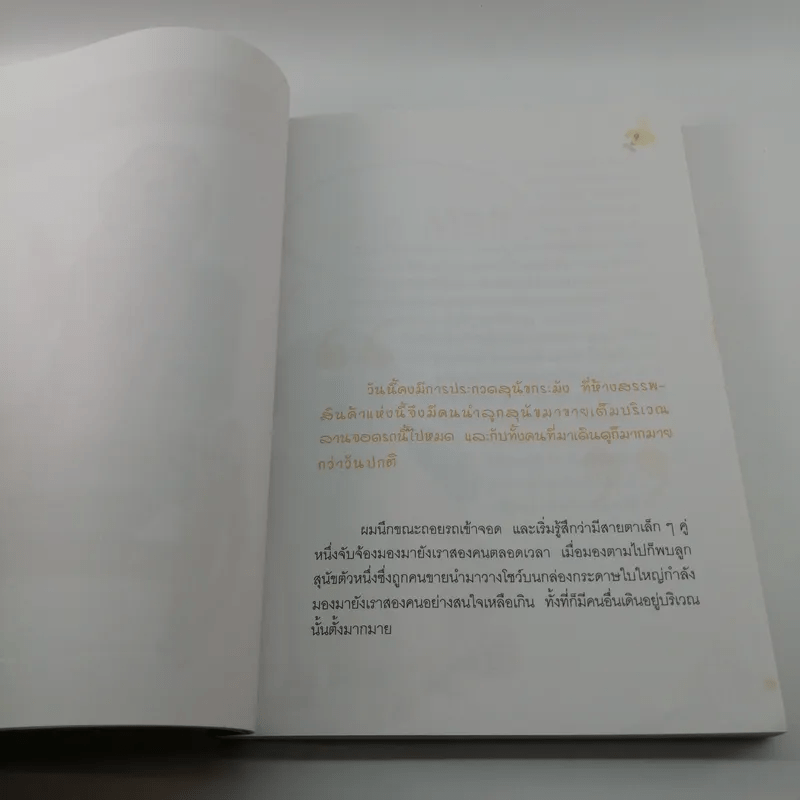 วันนี้คงมีการประกวดสุนัขกระมัง ที่ห้างสรรพ-
สินค้าแห่งนี้จึงมีคนนำลูกสุนัขมาขายเต็มบริเวณ
ลานจอดรถนี้ไปหมด และกับทั้งคนที่มาเดินดูก็มากมาย
กว่าวันปกติ
ผมนึกขณะถอยรถเข้าจอด และเริ่มรู้สึกว่ามีสายตาเล็ก ๆ คู่
หนึ่งจับจ้องมองมายังเราสองคนตลอดเวลา เมื่อมองตามไปก็พบลูก
สุนัขตัวหนึ่งซึ่งถูกคนขายนำมาวางโชว์บนกล่องกระดาษใบใหญ่กำลัง
มองมายังเราสองคนอย่างสนใจเหลือเกิน ทั้งที่ก็มีคนอื่นเดินอยู่บริเวณ
นั้นตั้งมากมาย